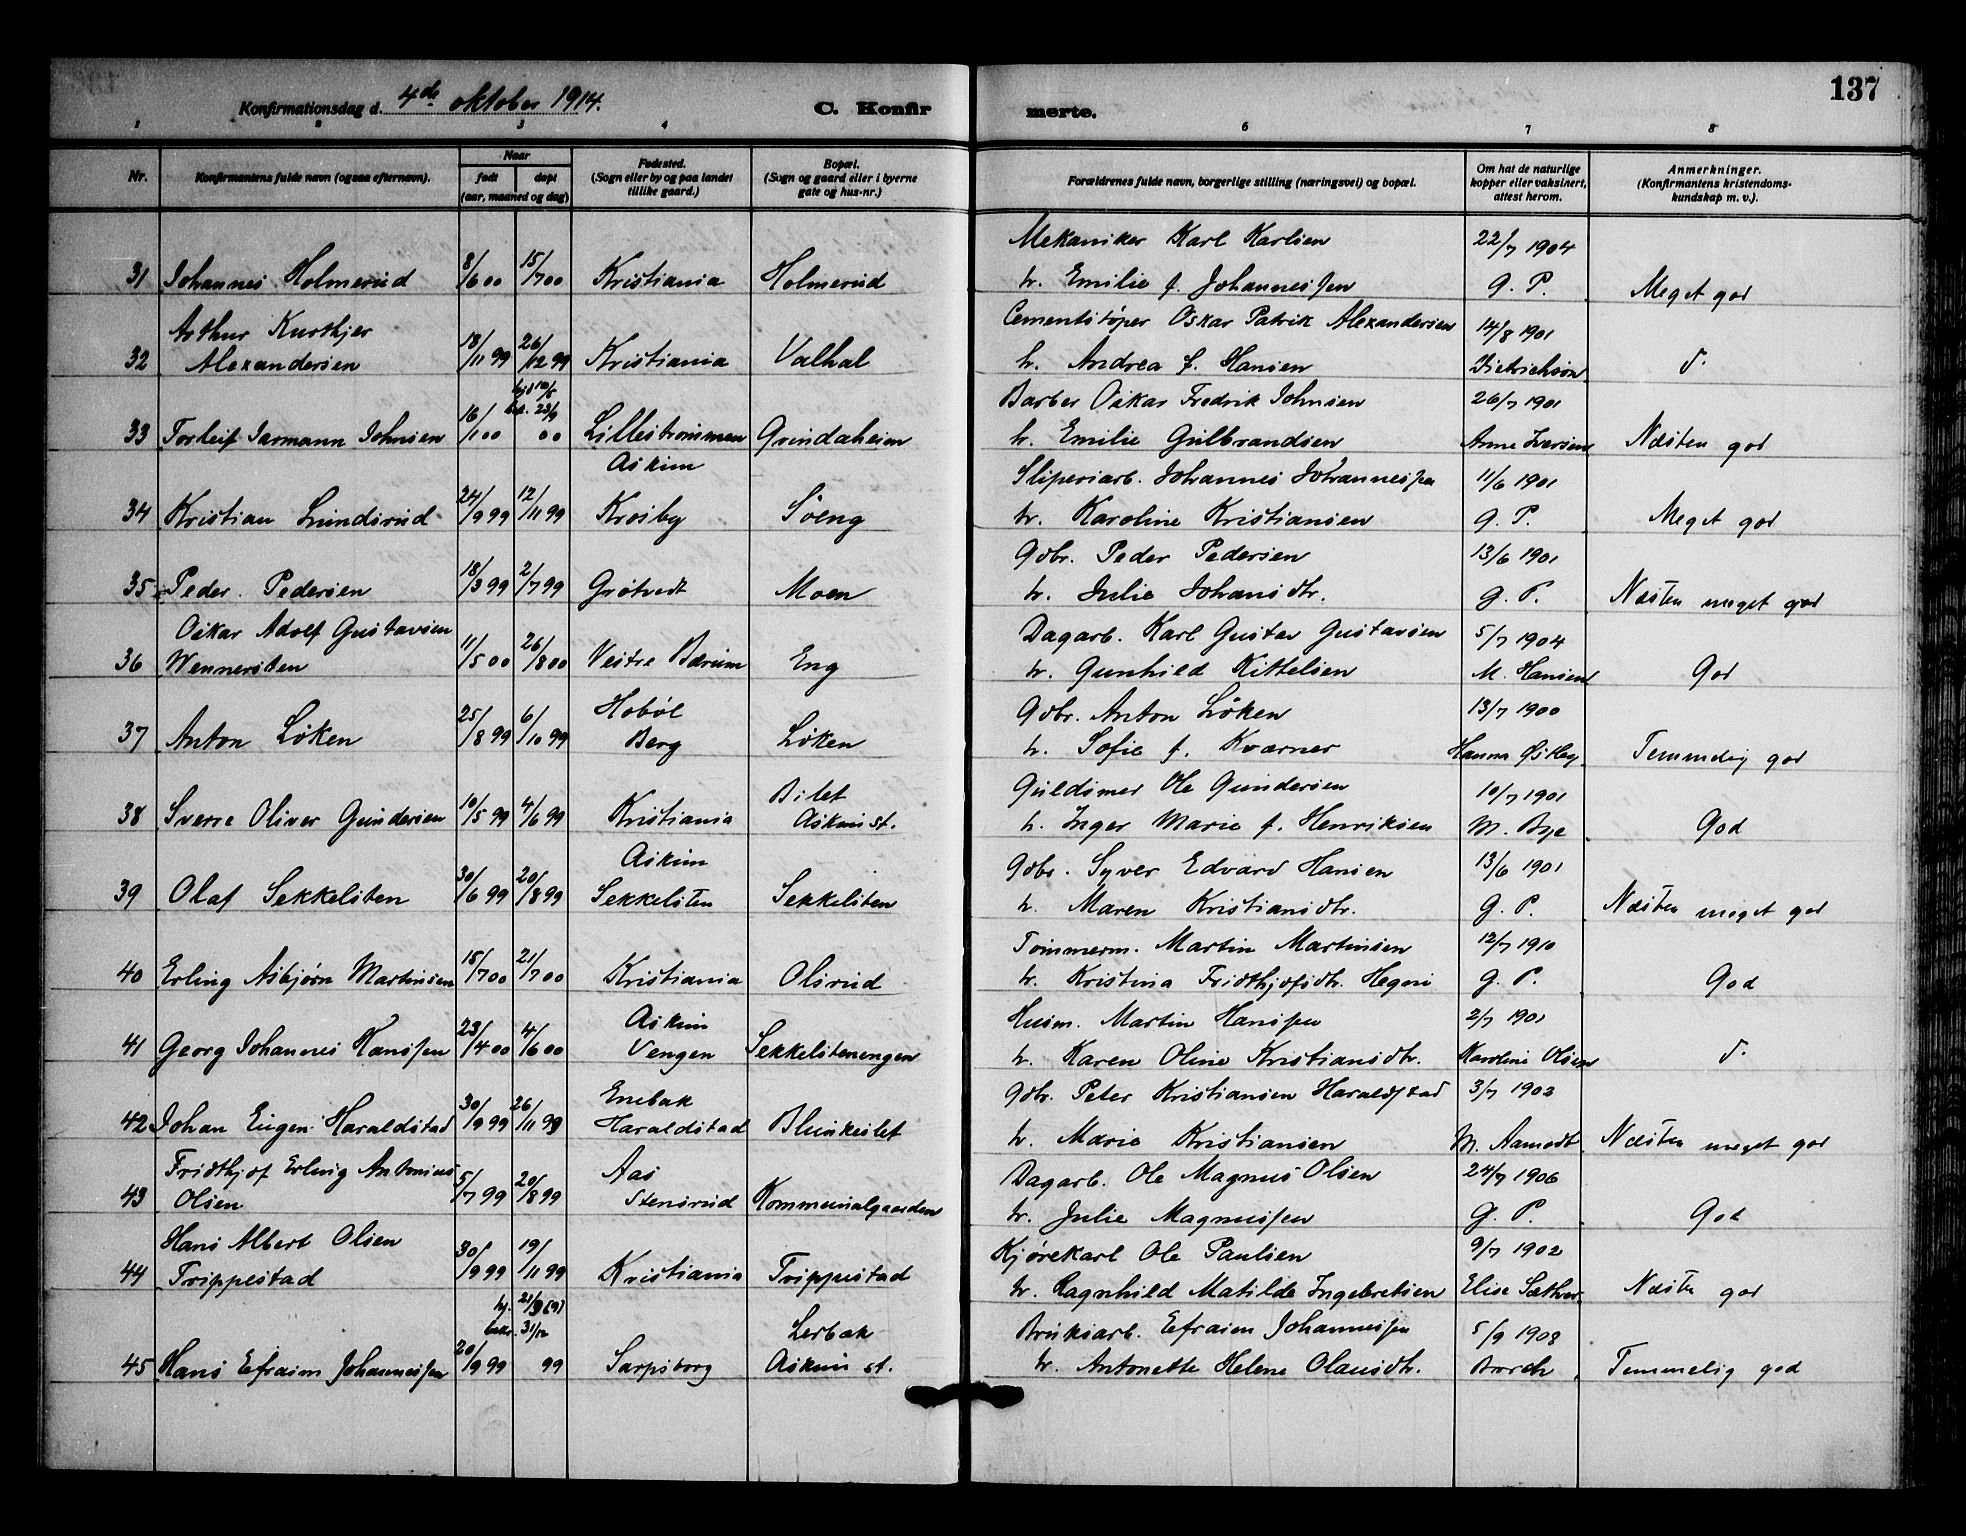 137
Konfirmationsdag d. 4de oktober 1914.
C. Konfirmerte.
1 2 3 4 6 7 8
Nr.
Konfirmantens fulde navn (og saa efternavn).
Naar
født
døpt
(aar, maaned og dag)
Fødested.
(Sogn eller by og paa landet
tillike gaard.)
Bopæl.
(Sogn og gaard eller i byerne
gate og hus-nr.)
Forældrenes fulde navn, borgerlige stilling (næringsvei) og bopæl.
Om hat de naturlige
kopper eller vaksinert,
attest herom.
Anmerkninger.
(Konfirmantens kristendoms-
kundskap m. v.).
Mekaniker Karl Karlsen 22/7 1904
31 Johannes Holmerud 8/6 00 15/7 00 Kristiania Holmerud h. Emilie f. Johannessen G. P. Meget god
Arthur Cementstøper Oskar Patrik Alexandersen 14/8 1901
32 Alexandersen 18/11 99 26/12 99 Kristiania Valhal h. Andrea f. Hansen Dietrichson d.
Barber Oskar Fredrik Johnsen 26/7 1901
33 Torleif Jarmann Johnsen 16/1 00 23/9 00 Lillestrømmen Grindaheim h. Emilie Gulbrandsen Anne Iversen Næsten god
Askim Sliperiarb. Johannes Johannessen 11/6 1901
34 Kristian Lundsrud 24/9 99 12/11 99 Krosby Søeng h. Karoline Kristiansen G. P. Meget god
Gdbr. Peder Pedersen 13/6 1901
35 Peder Pedersen 18/3 99 2/7 99 Grøtvedt Moen h. Julie Johansdtr. G. P. Næsten meget god
Oskar Adolf Gustavsen Dagarb. Karl Gustav Gustavsen 5/7 1904
36 Wennersten 11/5 00 26/8 00 Vestre Bærum Eng h. Gunhild Kittelsen M. Hansen God
Hobøl Gdbr. Anton Løken 13/7 1900
37 Anton Løken 25/8 99 6/10 99 Berg Løken h. Sofie f. Kværner Hanna Temmelig god
Bilet Guldsmed Ole Gundersen 10/7 1901
38 Sverre Oliver Gundersen 10/5 99 4/6 99 Kristiania Askim st. h. Inger Marie f. Henriksen M. Bye God
Askim Gdbr. Syver Edvard Hansen 13/6 1901
39 Olaf Sekkelsten 30/6 99 20/8 99 Sekkelsten Sekkelsten h. Maren Kristiansdtr. G. P. Næsten meget god
Tømmerm. Martin Martinsen 12/7 1910
40 Erling Asbjørn Martinsen 15/7 00 21/7 00 Kristiania Olsrud h. Kristina Fridthjofsdtr. Hegni G. P. God
Askim Husm. Martin Hanssen 2/7 1901
41 Georg Johannes Hanssen 23/4 00 4/6 00 Vengen Sekkelstenengen h. Karen Oline Kristiansdtr. Karoline Olsen d.
Enebak Gdbr. Peter Kristiansen Haraldstad 3/7 1902
42 Johan Eugen Haraldstad 30/9 99 26/11 99 Haraldstad Blunkeslet h. Marie Kristiansen M. Aamodt Næsten meget god
Fridthjof Erling Antonius Aas Dagarb. Ole Magnus Olsen 24/7 1906
43 Olsen 5/7 99 20/8 99 Stensrud Kommunalgaarden h. Julie Magnussen G. P. God
Hans Albert Olsen Kjørekarl Ole Paulsen 9/7 1902
44 Trippestad 30/9 99 19/11 99 Kristiania Trippestad h. Ragnhild Matilde Ingebretsen Elise Sæther Næsten god
hj. 21/9 bekr. 31/12 Lerbæk Bruksarb. Efraim Johannessen 5/9 1908
45 Hans Efraim Johannessen 20/9 99 99 Sarpsborg Askim st. h. Antonette Helene Olausdtr. Borch Temmelig god